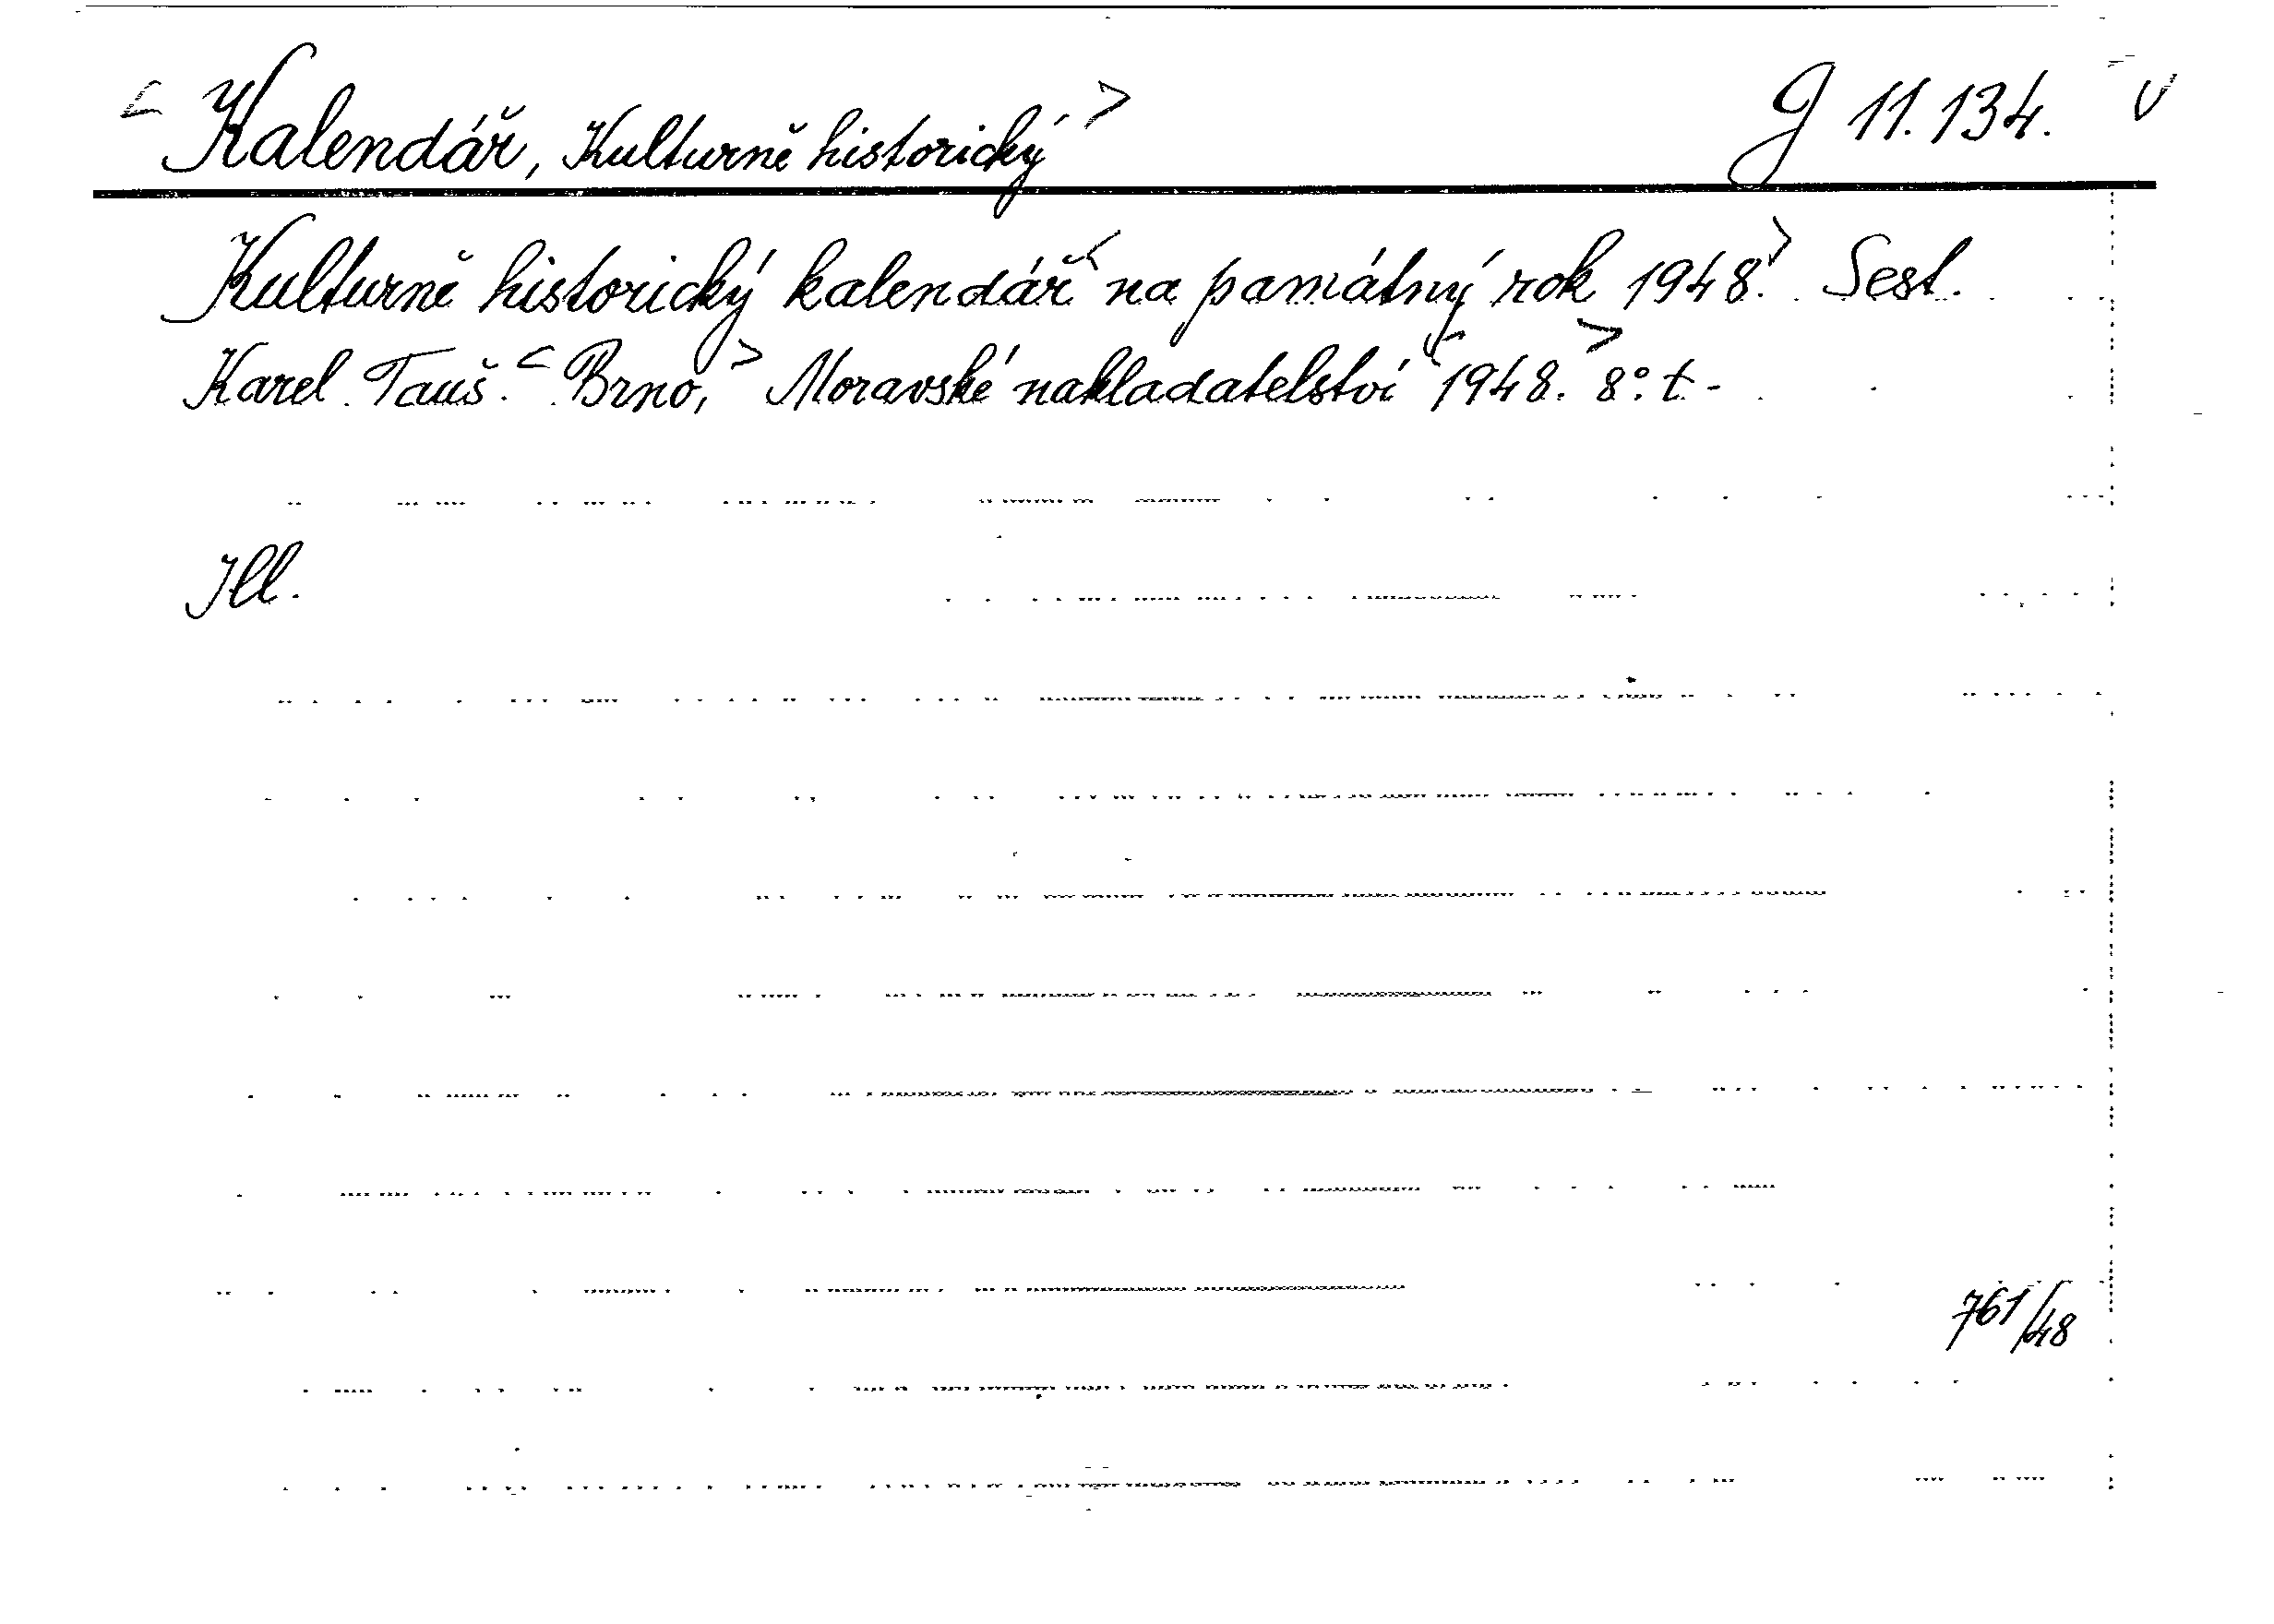 < Kalendář, Kulturně historický > G 11.134. v
Kulturně historický kalendář < na památný rok 1948. > Sest.
Karel Tauš. < Brno, > Moravské nakladatelství < 1948. > 8°. t. -
Ill.
761/48